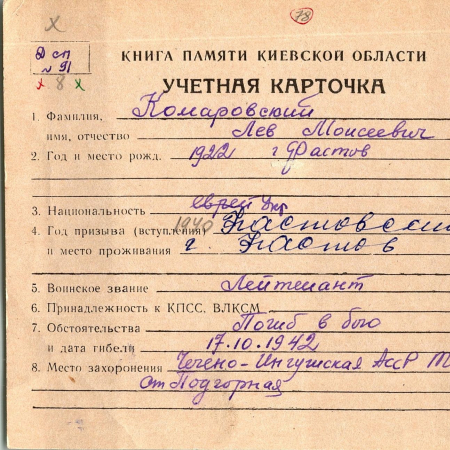 78
Х
Д сп
№ 91
х 8 х
КНИГА ПАМЯТИ КИЕВСКОЙ ОБЛАСТИ
УЧЕТНАЯ КАРТОЧКА
1. Фамилия, Комаровский
имя, отчество Лев Моисеевич
2. Год и место рожд. 1922 г Фастов
3. Национальность еврей
4. Год призыва (вступления) 1940 Фастовски
и место проживания г. Фастов
5. Воинское звание Лейтенант
6. Принадлежность к КПСС, ВЛКСМ
7. Обстоятельства Погиб в бою
и дата гибели 17.10.1942
8. Место захоронения Чечено-Ингушская АссР
от Подгорная